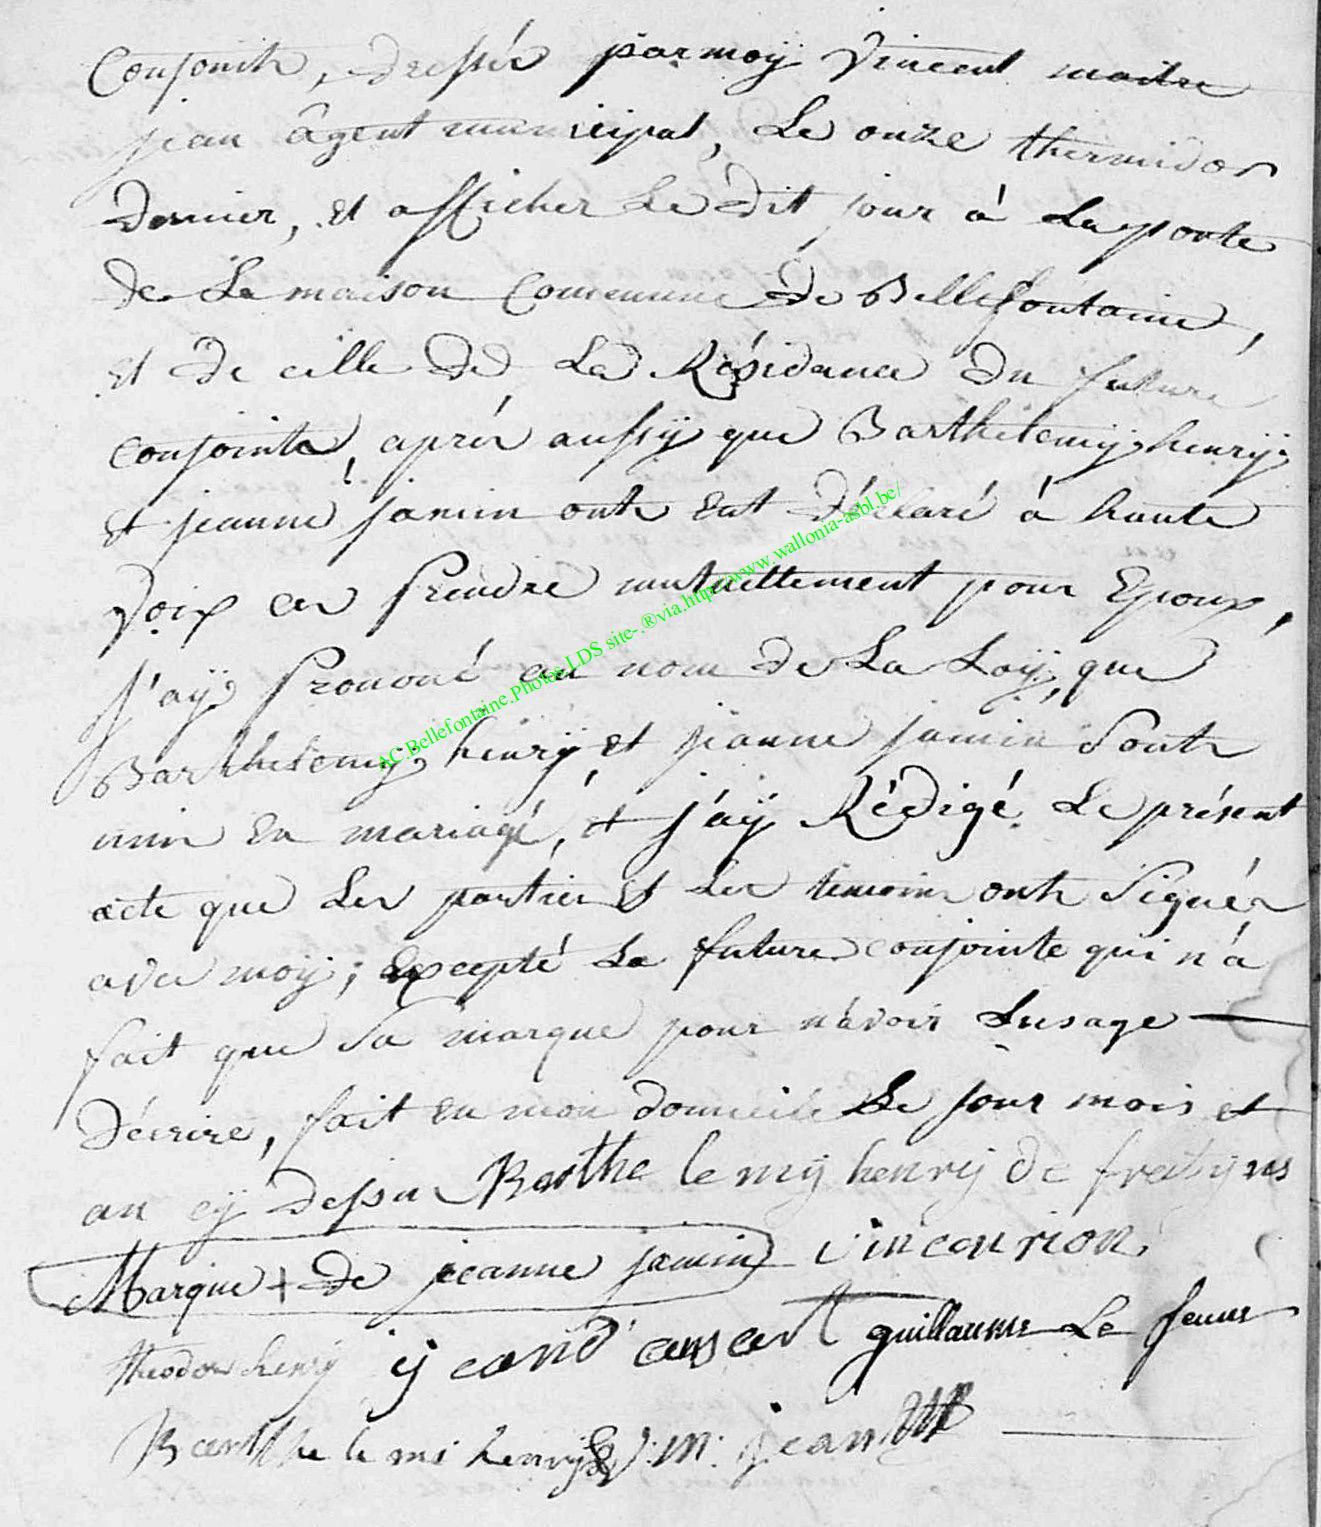 Conjoints, dressés par moÿ Vincent maitre
jean âgent municipal, Le onze thermidor
dernier, et afficher Le dit jour á La porte
de La maison Commune de Bellefontaine,
et de celle de La Résidance du future
conjointe, aprés aussÿ que Barthelemÿ henrÿ
et jeanne jamin onts eut déclaré á haute
Voix ces prendre mutuellement pour Epoux,
j'aÿ prononcé au nom de La Loÿ, que
Barthelemÿ henrÿ et jeanne jamin sonts
unis en mariagé, et j'aÿ Rédigé Le présent
acte que Les partiés et Les temoins onts signés
avec moÿ; Excepté La future conjointe qui n'á
fait que sa marque pour n'avoir Lusage
décrire, fait en mon domicile Le jour mois et
an cÿ dessu Barthe le mÿ henrÿ de
Marque + de jeanne jamin
theodor henrÿ guillaume Le
Barthe le mi henrÿ V: M: jean
AC.Bellefontaine.Photos.LDS site-.®via.http://www.wallonia-asbl.be/